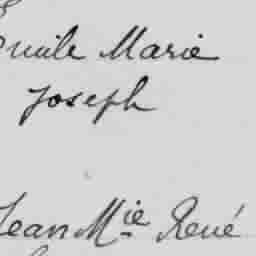 Emile Marie
Joseph
Jean Mie René